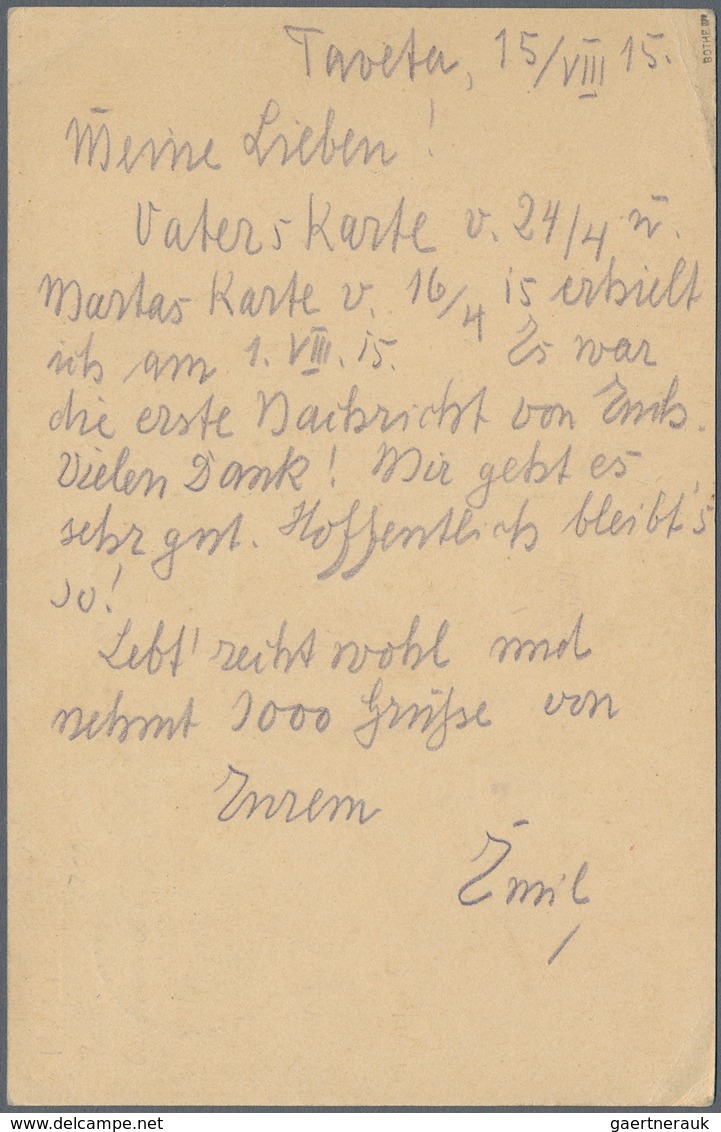 BOTHE BPP
Taveta, 15/VIII 15.
Meine Lieben!
Vaters Karte v. 24/4 u.
Martas Karte v. 16/4 15 erhielt
ich am 1. VIII. 15. Es war
die erste Nachricht von Euch.
Vielen Dank! Mir geht es
sehr gut. Hoffentlich bleibt's
so!
Lebt' recht wohl und
nehmt 1000 Grüße von
Eurem
Emil
gaertnerauk @ delcampe.net